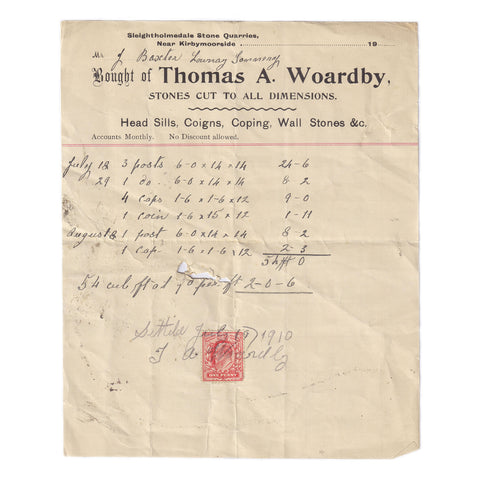 Sleightholmedale Stone Quarries,
Near Kirbymoorside 19
Mr J Baxter
Bought of Thomas A. Woardby,
STONES CUT TO ALL DIMENSIONS.
Head Sills, Coigns, Coping, Wall Stones &c.
Accounts Monthly. No Discount allowed.
July 18 3 posts 6-0 x 14 x 14 24-6
29 1 do. 6-0 x 14 x 14 8 2
4 caps 1-6 x 1-6 x 12 9-0
1 coin 1-6 x 15 x 12 1-11
August 8 1 post 6-0 x 14 x 14 8 2
1 cap 1-6 x 1-6 x 12 2-3
54 ft 0
54 cub ft at 9D per ft 2-0-6
Settled July 1910
T. A. Woardby
ONE PENNY